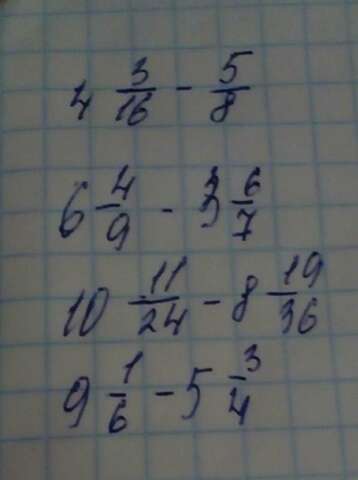 4 3/16 - 5/8
6 4/9 - 3 6/7
10 11/24 - 8 19/36
9 1/6 - 5 3/4